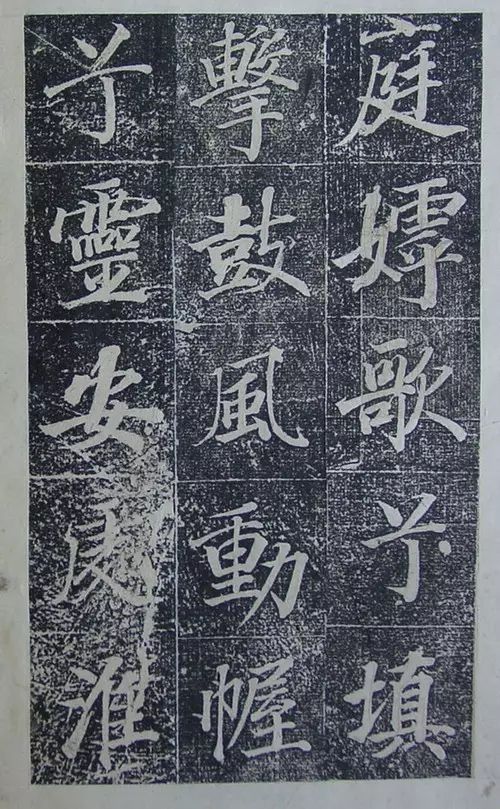 庭嫮歌兮填
擊鼓風動幄
兮靈安淮